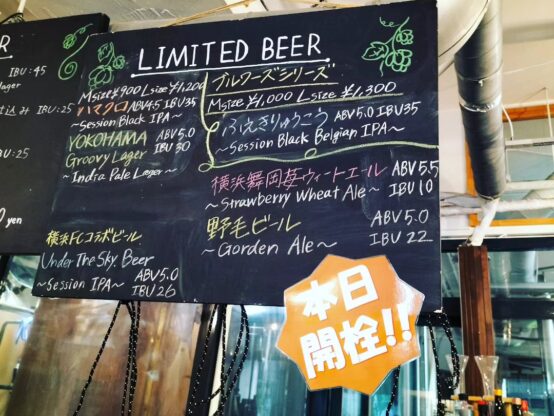 ER
IBU:45
lager
込み IBU:25
BU:25
yen
LIMITED BEER
M size ¥900 L size ¥1,200
ハマクロ ABV4.5 IBU35
~Session Black IPA~
YOKOHAMA ABV5.0
Groovy Lager IBU 30
~India Pale Lager~
横浜FCコラボビール
Under The Sky Beer
~Session IPA~ ABV5.0
IBU26
ブルワーズシリーズ
M size ¥1,000 L size ¥1,300
ふえきりゅうこう ABV5.0 IBU35
~Session Black Belgian IPA~
横浜舞岡苺ウィートエール ABV5.5
~Strawberry Wheat Ale~ IBU10
野毛ビール ABV5.0
~Gorden Ale~ IBU 22
本日
開栓!!